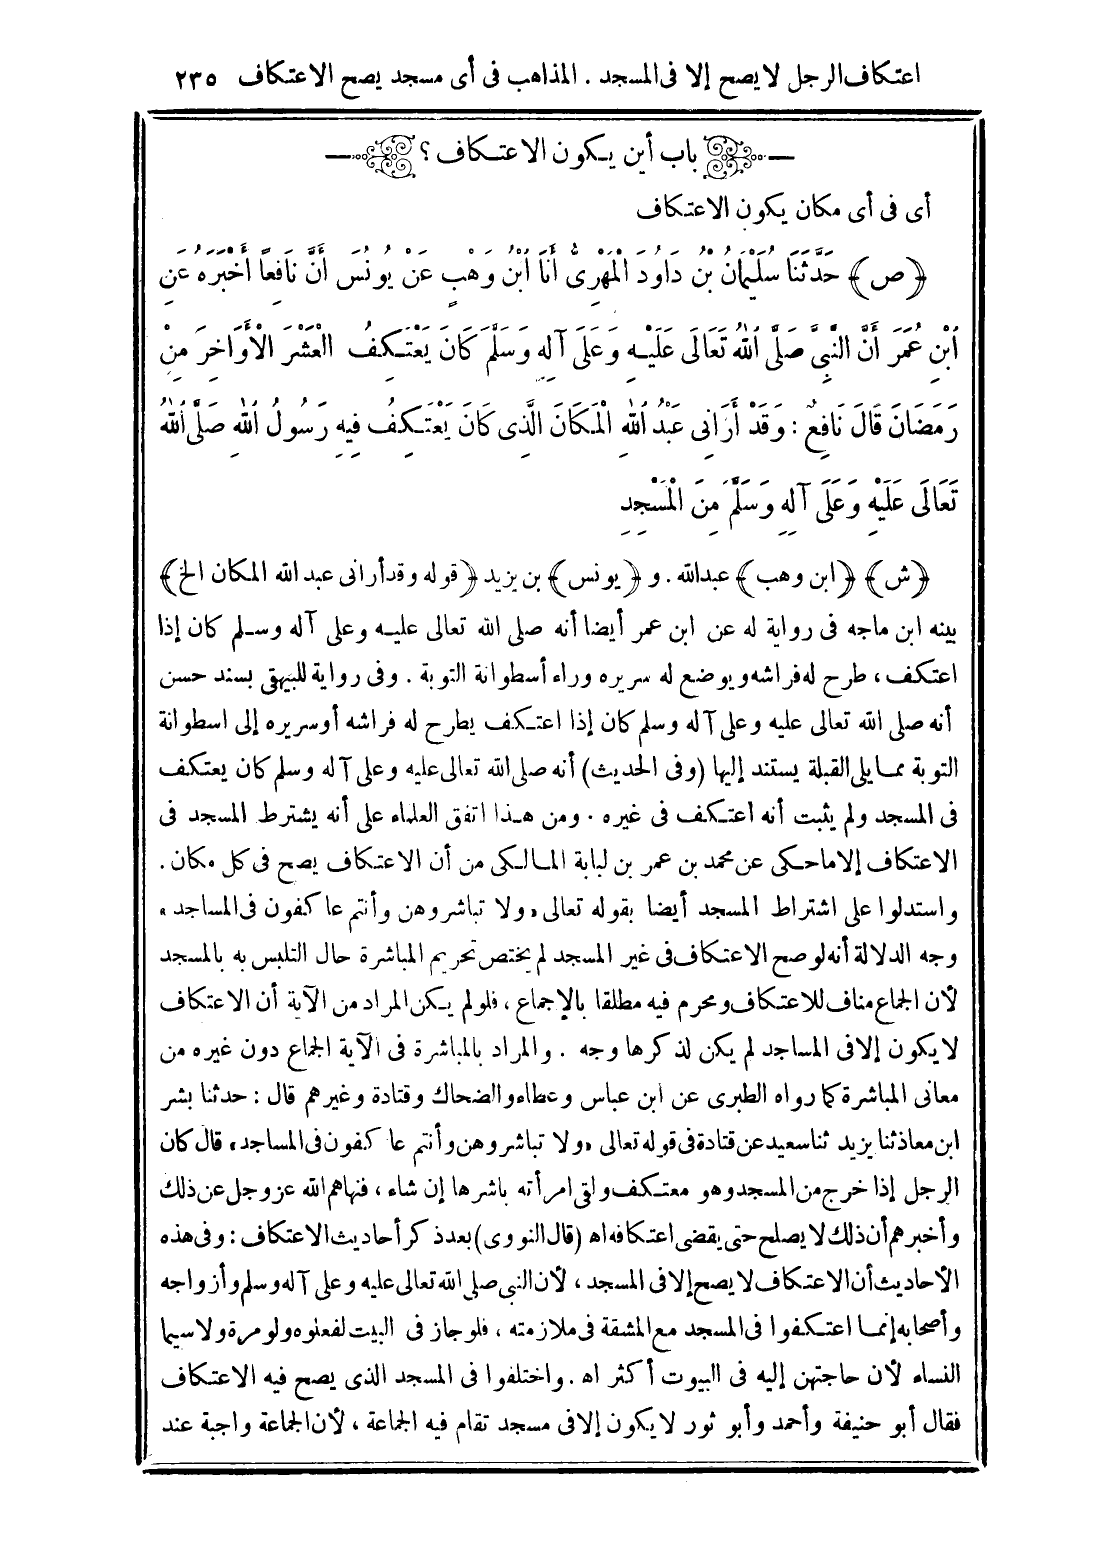 اعتكاف الرجل لا يصح إلا فى المسجد . المذاهب فى أى مسجد يصح الاعتكاف ٢٣٥
باب أين يكون الاعتكاف ؟
أى فى أى مكان يكون الاعتكاف
﴿ص﴾ حَدَّثَنَا سُلَيْمَانُ بْنُ دَاوُدَ الْمَهْرِىُّ أَنَا ابْنُ وَهْبٍ عَنْ يُونُسَ أَنَّ نَافِعاً أَخْبَرَهُ عَنِ
ابْنِ عُمَرَ أَنَّ النَّبِىَّ صَلَّى اللهُ تَعَالَى عَلَيْهِ وَعَلَى آلِهِ وَسَلَّمَ كَانَ يَعْتَكِفُ الْعَشْرَ الْأَوَاخِرَ مِنْ
رَمَضَانَ قَالَ نَافِعٌ : وَقَدْ أَرَانِى عَبْدُ اللهِ الْمَكَانَ الَّذِى كَانَ يَعْتَكِفُ فِيهِ رَسُولُ اللهِ صَلَّى اللهُ
تَعَالَى عَلَيْهِ وَعَلَى آلِهِ وَسَلَّمَ مِنَ الْمَسْجِدِ
﴿ش﴾ ﴿ابن وهب﴾ عبدالله . و ﴿يونس﴾ بن يزيد ﴿قوله وقد أرانى عبد الله المكان الخ﴾
بينه ابن ماجه فى رواية له عن ابن عمر أيضا أنه صلى الله تعالى عليه وعلى آله وسلم كان إذا
اعتكف ، طرح له فراشه ويوضع له سريره وراء أسطوانة التوبة . وفى رواية للبيهقى بسند حسن
أنه صلى الله تعالى عليه وعلى آله وسلم كان إذا اعتكف يطرح له فراشه أو سريره إلى اسطوانة
التوبة مما يلى القبلة يستند إليها (وفى الحديث) أنه صلى الله تعالى عليه وعلى آله وسلم كان يعتكف
فى المسجد ولم يثبت أنه اعتكف فى غيره . ومن هذا اتفق العلماء على أنه يشترط المسجد فى
الاعتكاف إلا ما حكى عن محمد بن عمر بن لبابة المالكى من أن الاعتكاف يصح فى كل مكان .
واستدلوا على اشتراط المسجد أيضا بقوله تعالى « ولا تباشروهن وأنتم عاكفون فى المساجد »
وجه الدلالة أنه لو صح الاعتكاف فى غير المسجد لم يختص تحريم المباشرة حال التلبس به بالمسجد
لأن الجماع مناف للاعتكاف ومحرم فيه مطلقا بالإجماع ، فلو لم يكن المراد من الآية أن الاعتكاف
لا يكون إلا فى المساجد لم يكن لذكرها وجه . والمراد بالمباشرة فى الآية الجماع دون غيره من
معانى المباشرة كما رواه الطبرى عن ابن عباس وعطاء والضحاك وقتادة وغيرهم قال : حدثنا بشر
ابن معاذ ثنا يزيد ثنا سعيد عن قتادة فى قوله تعالى « ولا تباشروهن وأنتم عاكفون فى المساجد » قال كان
الرجل إذا خرج من المسجد وهو معتكف ولقى امرأته باشرها إن شاء ، فنهاهم الله عز وجل عن ذلك
وأخبرهم أن ذلك لا يصلح حتى يقضى اعتكافه اه (قال النووى) بعد ذكر أحاديث الاعتكاف : وفى هذه
الأحاديث أن الاعتكاف لا يصح إلا فى المسجد ، لأن النبى صلى الله تعالى عليه وعلى آله وسلم وأزواجه
وأصحابه إنما اعتكفوا فى المسجد مع المشقة فى ملازمته ، فلو جاز فى البيت لفعلوه ولو مرة ولا سيما
النساء لأن حاجتهن إليه فى البيوت أكثر اه . واختلفوا فى المسجد الذى يصح فيه الاعتكاف
فقال أبو حنيفة وأحمد وأبو ثور لا يكون إلا فى مسجد تقام فيه الجماعة ، لأن الجماعة واجبة عند